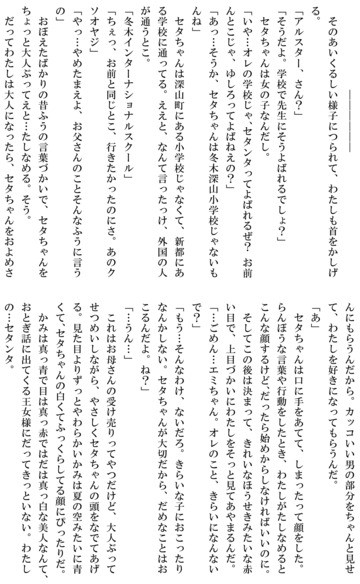 そのあいくるしい様子につられて、わたしも首をかしげ
る。
「アルスター、さん?」
「そうだよ。学校で先生にそうよばれるでしょ?」
セタちゃんは女の子なんだし。
「いや…オレの学校じゃ、セタンタってよばれるぜ?お前
んとこじゃ、ゆしろってよばねえの?」
「あっ…そうか、セタちゃんは冬木深山小学校じゃないも
んね」
セタちゃんは深山町にある小学校じゃなくて、新都にあ
る学校に通ってる。ええと、なんて言ったっけ、外国の人
が通うとこ。
「冬木インターナショナルスクール」
「ちぇっ、お前と同じとこ、行きたかったのにさ。あのク
ソオヤジ」
「やっ…やめたまえよ、お父さんのことそんなふうに言う
の」
おぼえたばかりの昔ふうの言葉づかいで、セタちゃんを
ちょっと大人ぶってえと…たしなめる。そう。
だってわたしは大人になったら、セタちゃんをおよめさ
んにもらうんだから。カッコいい男の部分をちゃんと見せ
て、わたしを好きになってもらうんだ。
「あ」
セタちゃんは口に手をあてて、しまったって顔をした。
らんぼうな言葉や行動をしたとき、わたしがたしなめると
こんな顔するけど、だったら始めからしなければいいのに。
そしてこの後は決まって、きれいなほうせきみたいな赤
い目で、上目づかいにわたしをそっと見てあやまるんだ。
「…ごめん…エミちゃん。オレのこと、きらいになんない
で?」
「もう…そんなわけ、ないだろ。きらいな子におこったり
なんかしない。セタちゃんが大切だから、だめなことはお
こるんだよ。ね?」
「…うん…」
これはお母さんの受け売りってやつだけど、大人ぶって
せつめいしながら、やさしくセタちゃんの頭をなでてあげ
る。見た目よりずっとやわらかいかみは夏の空みたいに青
くて、セタちゃんの白くてふっくらしてる顔にぴったりだ。
かみは真っ青で目は真っ赤ではだは真っ白な美人なんて、
おとぎ話に出てくる王女様にだってきっといない。わたし
の…セタンタ。